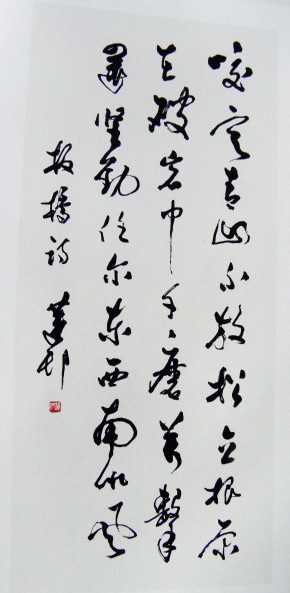 咬定青山不放松立根原
在破岩中千磨萬擊
還坚劲任尔东西南北风
板橋诗